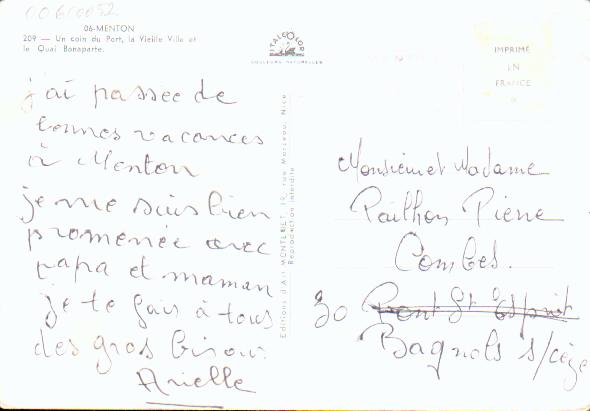 00610052
06-MENTON
209 — Un coin du Port, la Vieille Ville et
le Quai Bonaparte.
ITALCOLOR
COULEURS NATURELLES
IMPRIMÉ
EN
FRANCE
j'ai passée de
bonnes vacances
à Menton
je me suis bien
promenée avec
papa et maman
je te fais à tous
des gros bisoux
Arielle
Editions d'Art MONTLUET, 19, rue Marceau, Nice
Reproduction interdite
Monsieur et Madame
Pailhon Pierre
Combes.
30 Pont St Esprit
Bagnols s/cèze